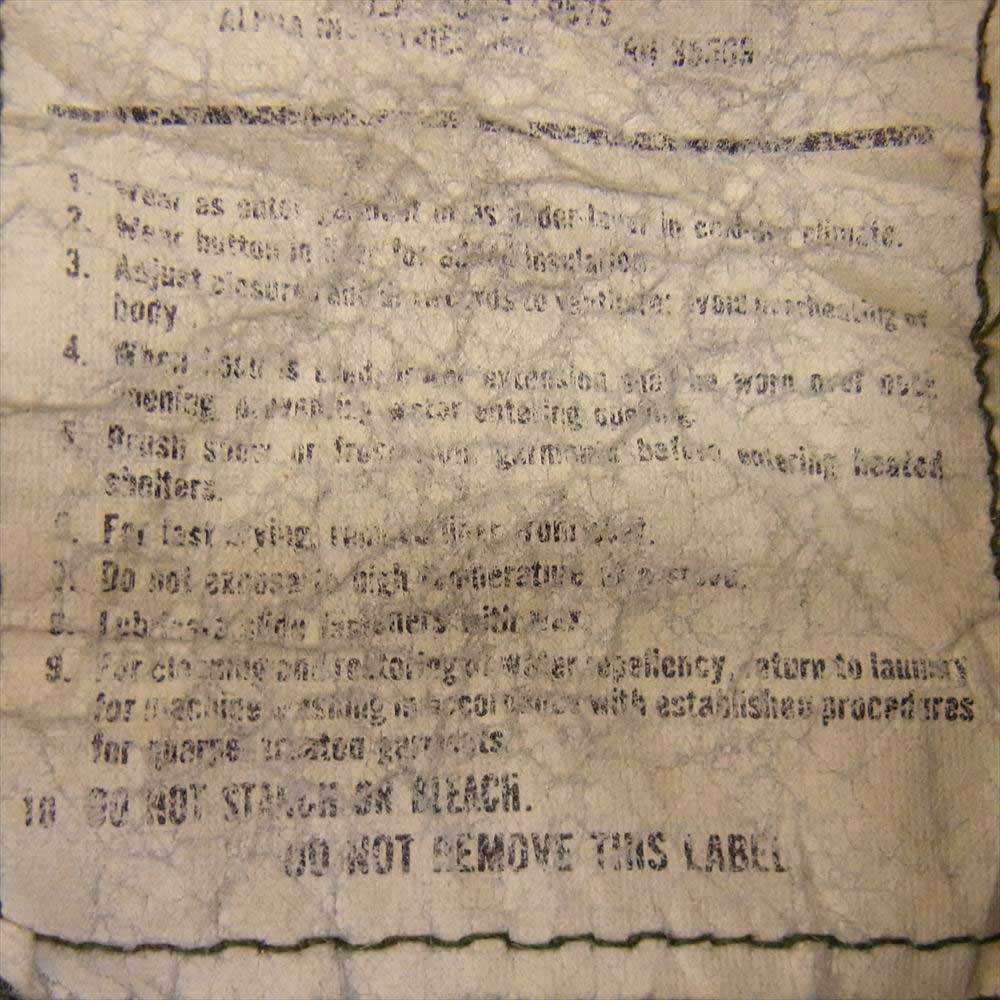 ALPHA INDUSTRIES
1. Wear as outer garment or as under-layer in cold-dry climate.
2. Wear button in liner for added insulation.
3. Adjust closures and drawcords to ventilate; avoid overheating of
body.
4. When hood is used, lower extension may be worn over
opening, preventing water entering opening.
5. Brush snow or frost from garments before entering heated
shelters.
6. For fast drying, remove liner from coat.
7. Do not expose to high temperature of a stove.
8. Lubricate slide fasteners with wax.
9. For cleaning and restoring of water repellency, return to laundry
for machine washing in accordance with established procedures
for quarpel treated garments.
10 DO NOT STARCH OR BLEACH.
DO NOT REMOVE THIS LABEL